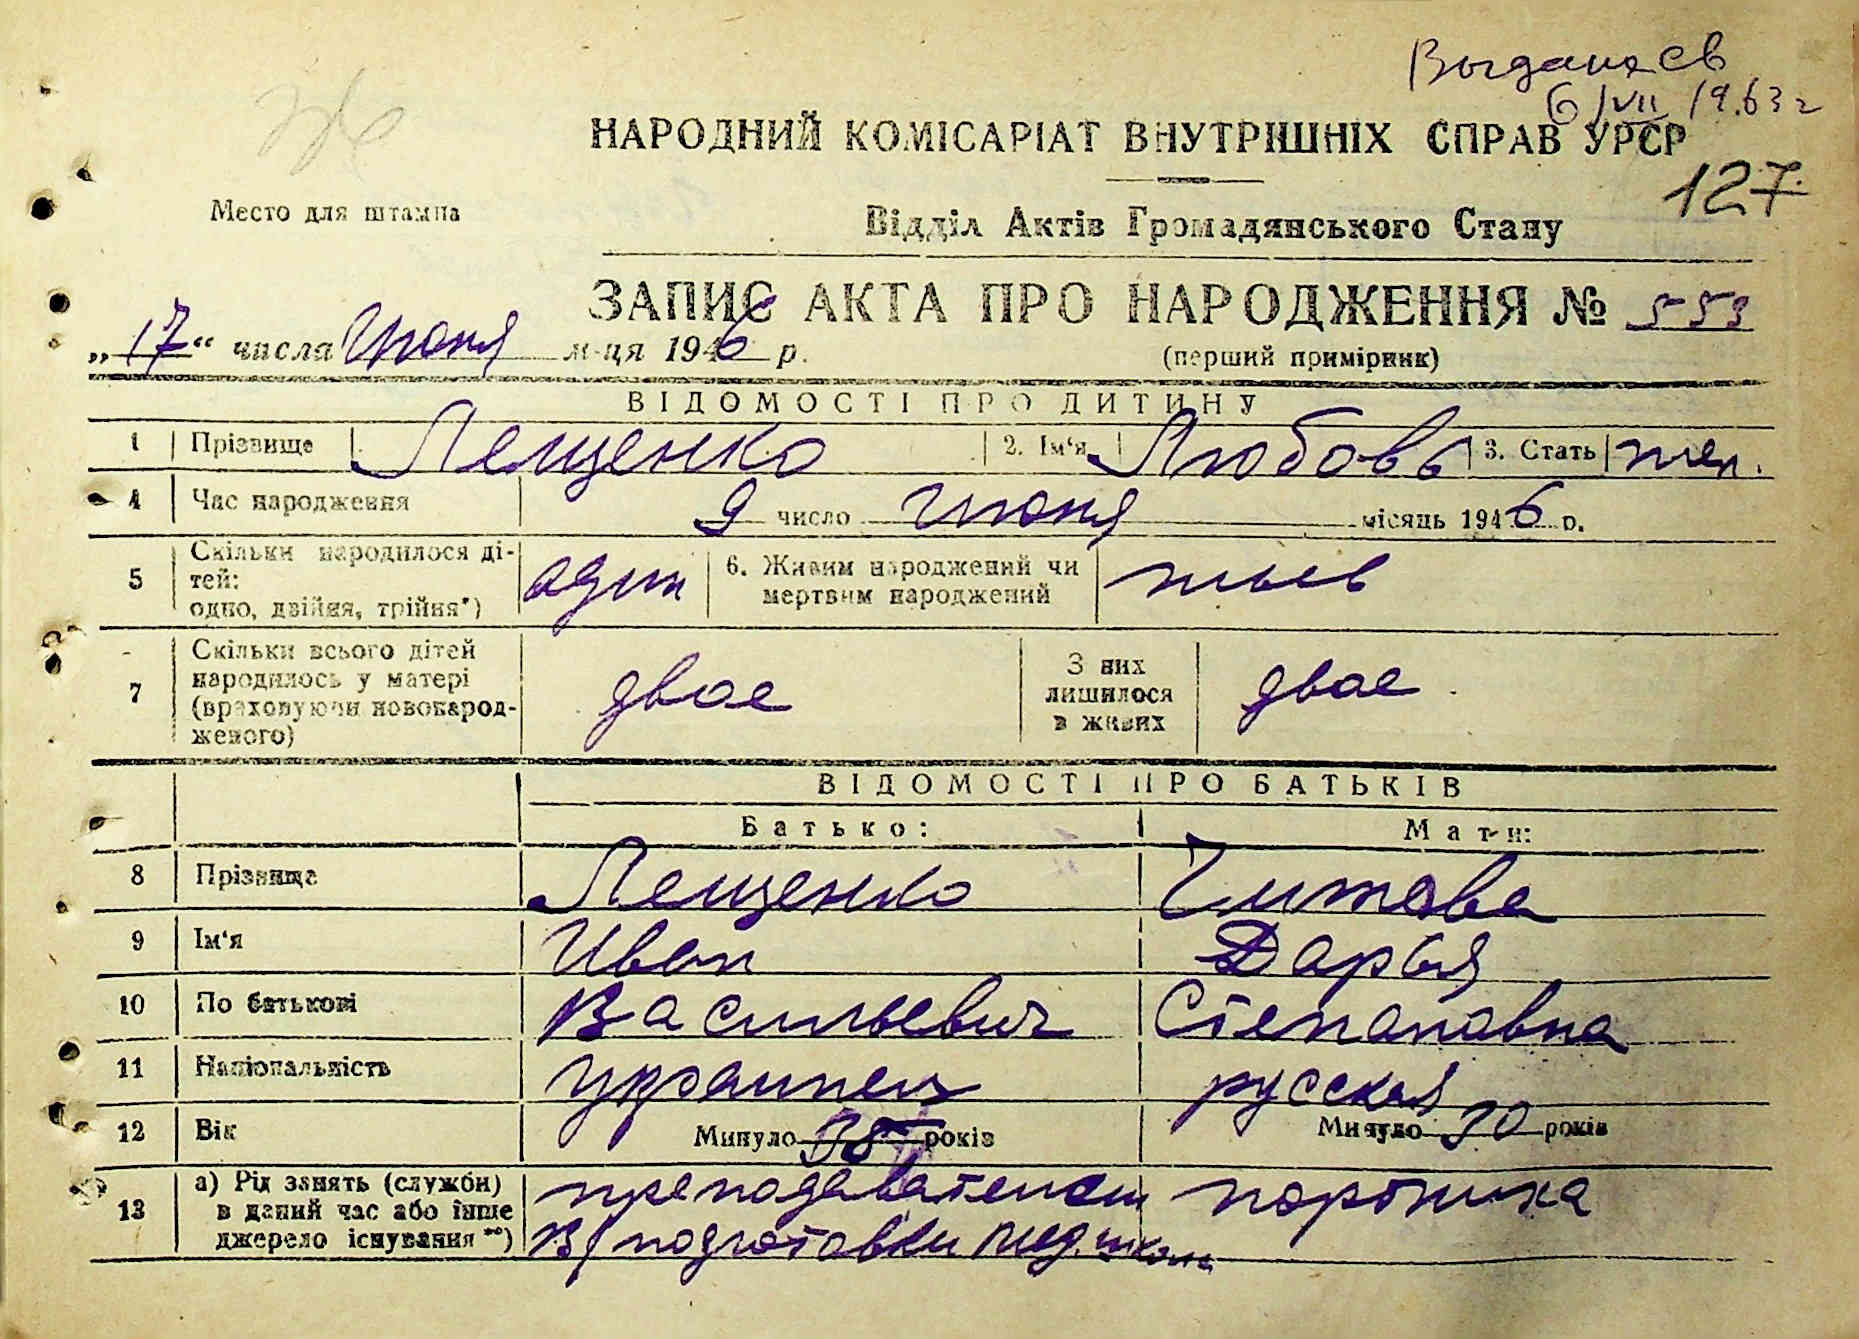 Выдано св
6/VII 1963 г
НАРОДНИЙ КОМІСАРІАТ ВНУТРІШНІХ СПРАВ УРСР
127
Место для штампа
Відділ Актів Громадянського Стану
ЗАПИС АКТА ПРО НАРОДЖЕННЯ № 553
„17“ числа Июня м-ця 1946 р.
(перший примірник)
ВІДОМОСТІ ПРО ДИТИНУ
1 Прізвище Лещенко 2. Ім‘я Любовь 3. Стать жен.
4 Час народження 9 число Июня місяць 1946 р.
5 Скільки народилося дітей: одно, двійня, трійня*) один 6. Живим народжений чи мертвим народжений жив
7 Скільки всього дітей народилось у матері (враховуючи новонародженого) двое З них лишилося в живих двое
ВІДОМОСТІ ПРО БАТЬКІВ
Батько: Мати:
8 Прізвище Лещенко Читова
9 Ім‘я Иван Дарья
10 По батькові Васильевич Степановна
11 Національність украинец русская
12 Вік Минуло 38 років Минуло 30 років
13 а) Рід занять (служби) в даний час або інше джерело існування**) преподаватель
В/подготовки мед. школа